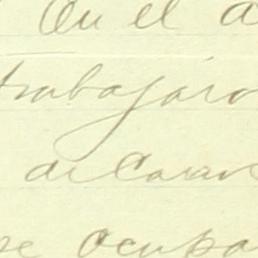 En el a
trabajaro
de Caran
se ocupa